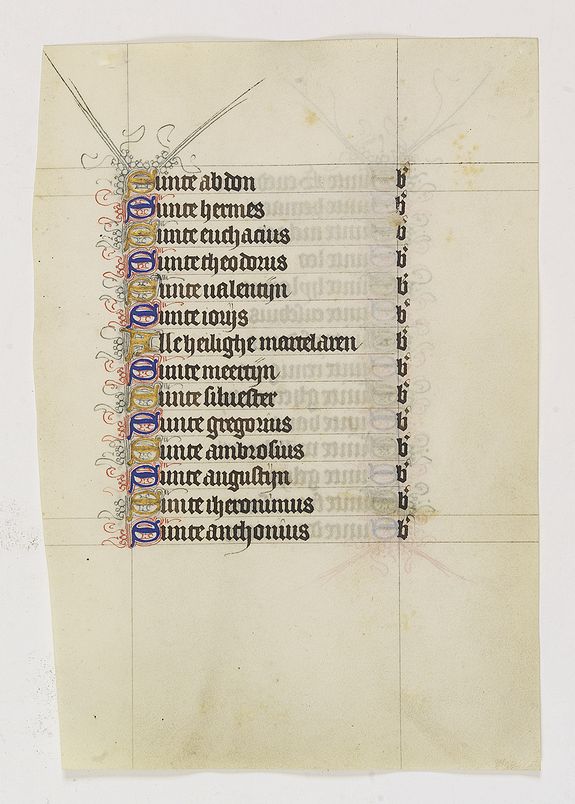 Sunte abdon b
Sunte hermes b
Sunte euchacius b
Sunte theodorus b
Sunte ualentijn b
Sunte iorijs b
Alle heilighe martelaren b
Sunte meertijn b
Sunte siluester b
Sunte gregorius b
Sunte ambrosius b
Sunte augustijn b
Sunte iheronimus b
Sunte anthonius b